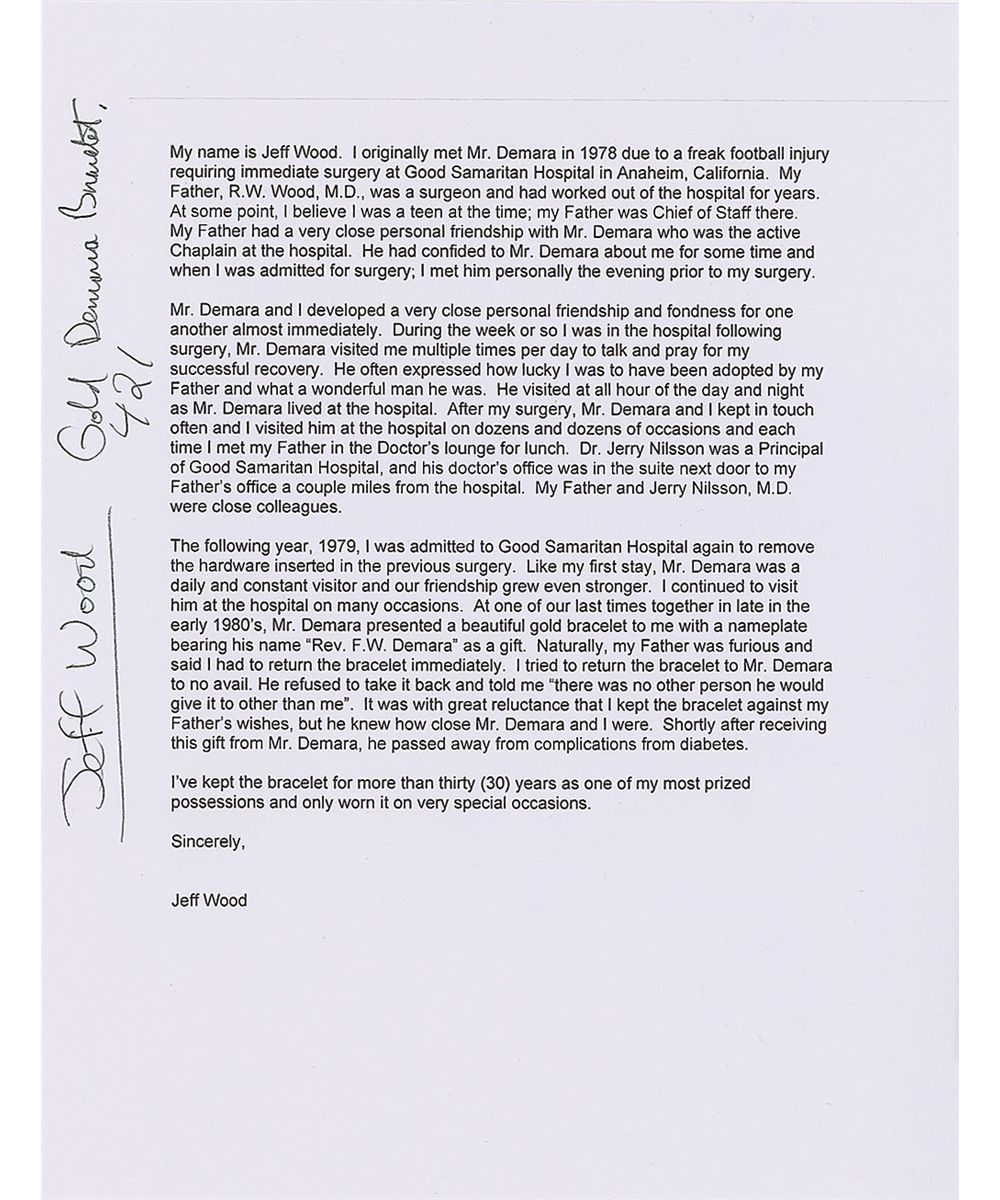 Jeff Wood Gold Demara Bracelet.
421
My name is Jeff Wood.  I originally met Mr. Demara in 1978 due to a freak football injury
requiring immediate surgery at Good Samaritan Hospital in Anaheim, California.  My
Father, R.W. Wood, M.D., was a surgeon and had worked out of the hospital for years.
At some point, I believe I was a teen at the time; my Father was Chief of Staff there.
My Father had a very close personal friendship with Mr. Demara who was the active
Chaplain at the hospital.  He had confided to Mr. Demara about me for some time and
when I was admitted for surgery; I met him personally the evening prior to my surgery.
Mr. Demara and I developed a very close personal friendship and fondness for one
another almost immediately.  During the week or so I was in the hospital following
surgery, Mr. Demara visited me multiple times per day to talk and pray for my
successful recovery.  He often expressed how lucky I was to have been adopted by my
Father and what a wonderful man he was.  He visited at all hour of the day and night
as Mr. Demara lived at the hospital.  After my surgery, Mr. Demara and I kept in touch
often and I visited him at the hospital on dozens and dozens of occasions and each
time I met my Father in the Doctor's lounge for lunch.  Dr. Jerry Nilsson was a Principal
of Good Samaritan Hospital, and his doctor's office was in the suite next door to my
Father's office a couple miles from the hospital.  My Father and Jerry Nilsson, M.D.
were close colleagues.
The following year, 1979, I was admitted to Good Samaritan Hospital again to remove
the hardware inserted in the previous surgery.  Like my first stay, Mr. Demara was a
daily and constant visitor and our friendship grew even stronger.  I continued to visit
him at the hospital on many occasions.  At one of our last times together in late in the
early 1980's, Mr. Demara presented a beautiful gold bracelet to me with a nameplate
bearing his name “Rev. F.W. Demara” as a gift.  Naturally, my Father was furious and
said I had to return the bracelet immediately.  I tried to return the bracelet to Mr. Demara
to no avail. He refused to take it back and told me “there was no other person he would
give it to other than me”.  It was with great reluctance that I kept the bracelet against my
Father's wishes, but he knew how close Mr. Demara and I were.  Shortly after receiving
this gift from Mr. Demara, he passed away from complications from diabetes.
I've kept the bracelet for more than thirty (30) years as one of my most prized
possessions and only worn it on very special occasions.
Sincerely,
Jeff Wood